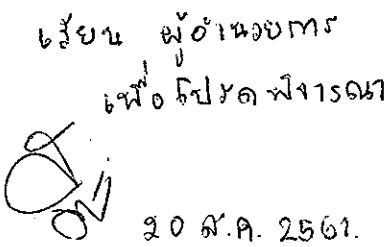 เรียน ผู้อำนวยการ
เพื่อโปรดพิจารณา
20 ส.ค. 2561.